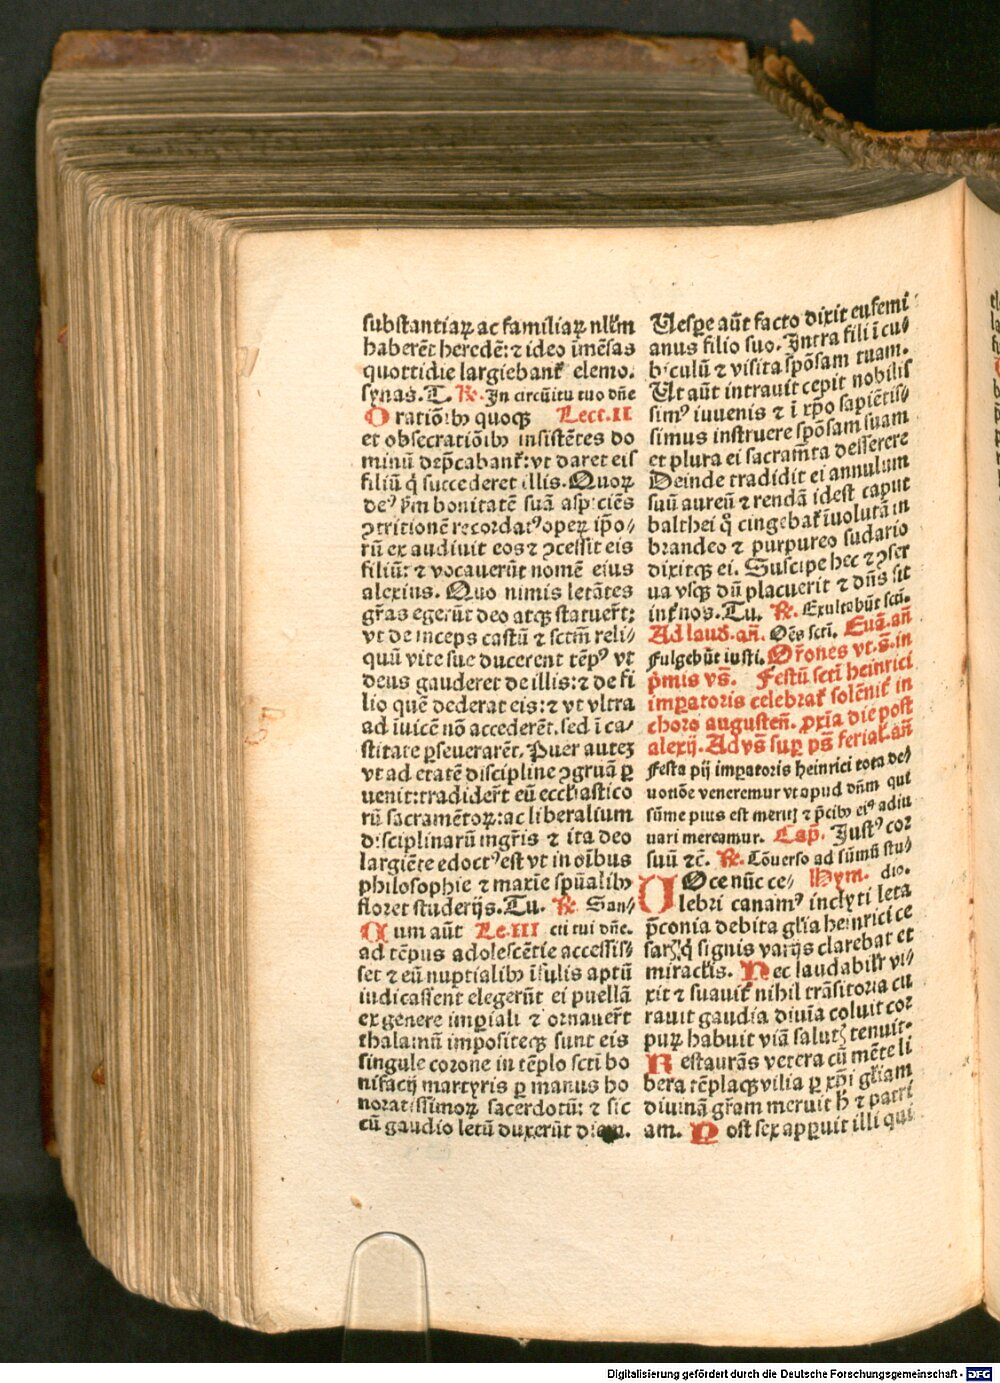 substantiaꝝ ac familiaꝝ nllm̄
haberēt heredē: ⁊ ideo im̄ēsas
quottidie largiebant᷑ elemo.
synas. T. ℟. In circūitu tuo dn̄e
Oratiōibꝰ quoqꝫ Lect. II
et obsecratiōibꝰ insistētes do
minū dep̄cabant᷑: vt daret eis
filiū q̇ succederet illis. Quoꝝ
deꝰ p̄m bonitatē suā aspiciēs
ꝯtritionē recordatꝰ opeꝝ ip̄o⸗
rū exaudiuit eos ⁊ ꝯcessit eis
filiū: ⁊ vocauerūt nomē eius
alexius. Quo nimis letātes
gr̄as egerūt deo atqꝫ statuer̄t:
vt deinceps castū ⁊ sctm̄ reli⸗
quū vite sue ducerent tēpꝰ vt
deus gauderet de illis: ⁊ de fi
lio quē dederat eis: ⁊ vt vltra
ad iuicē nō accederēt. sed ī ca⸗
stitate ꝑseuerarēt. Puer auteꝫ
vt ad etatē discipline ꝯgruā ꝑ
uenit: tradider̄t eū eccl̄iastico
rū sacramētoꝝ: ac liberalium
disciplinarū mgr̄is ⁊ ita deo
largiēte edoctꝰ est vt in oībus
philosophie ⁊ maxīe spūalibꝰ
floret studerijs. Tu. ℟. San⸗
Cum aūt Le. III cti tui dn̄e.
ad tēpus adolescētie accessis⸗
set ⁊ eū nuptialibꝰ īfulis aptū
iudicassent elegerūt ei puellā
ex genere imꝑiali ⁊ ornauer̄t
thalamū impositeqꝫ sunt eis
singule corone in tēplo scti bo
nifacij martyris ꝑ manus ho
noratissimoꝝ sacerdotū: ⁊ sic
cū gaudio letū duxerūt diem.
Vespe aūt facto dixit eufemi
anus filio suo. Intra fili ī cu⸗
biculū ⁊ visita spōsam tuam.
Vt aūt intrauit cepit nobilis
simꝰ iuuenis ⁊ ī xp̄o sapiētis⸗
simus instruere spōsam suam
et plura ei sacram̄ta disserere
Deinde tradidit ei annulum
suū aureū ⁊ rendā idest caput
balthei q̇ cingebat᷑ īuolutā in
brandeo ⁊ purpureo sudario
dixitqꝫ ei. Suscipe hec ⁊ ꝯser
ua vsqꝫ dū placuerit ⁊ dn̄s sit
int᷑ nos. Tu. ℟. Exultabūt scti.
Ad laud. an̄. Oēs scti. Euā. an̄
Fulgebūt iusti. Or̄ones vt. s. in
p̄mis vs̄. Festū scti heinrici
imꝑatoris celebrat᷑ solēnit᷑ in
choro augusteñ. ꝓxīa die post
alexij. Ad vs̄ suꝑ ps̄ ferial. an̄
Festa pij imꝑatoris heinrici tota de⸗
uotiōe veneremur vt apud dn̄m qui
sūme pius est meritꝭ ⁊ p̄cibꝰ eiꝰ adiu
uari mereamur. Cap̄. Justꝰ cor
suū ⁊c̄. ℟. Cōuerso ad sūmū stu⸗
VOce nūc ce⸗ Hym. dio.
lebri canamꝰ inclyti leta
p̄conia debita gl̄ia heinrici ce
sarꝭ q̇ signis varijs clarebat et
miraclis. Nec laudabilit᷑ vi⸗
xit ⁊ suauit᷑ nihil trāsitoria cu
rauit gaudia diuīa coluit cor
puꝝ habuit viā salutꝭ tenuit.
Restaurās vetera cū mēte li
bera tēplaqꝫ vilia ꝑ xp̄i gl̄iam
diuinā gr̄am meruit h̄ ⁊ patri
am. Post sex apꝑuit illi qui
Digitalisierung gefördert durch die Deutsche Forschungsgemeinschaft - DFG